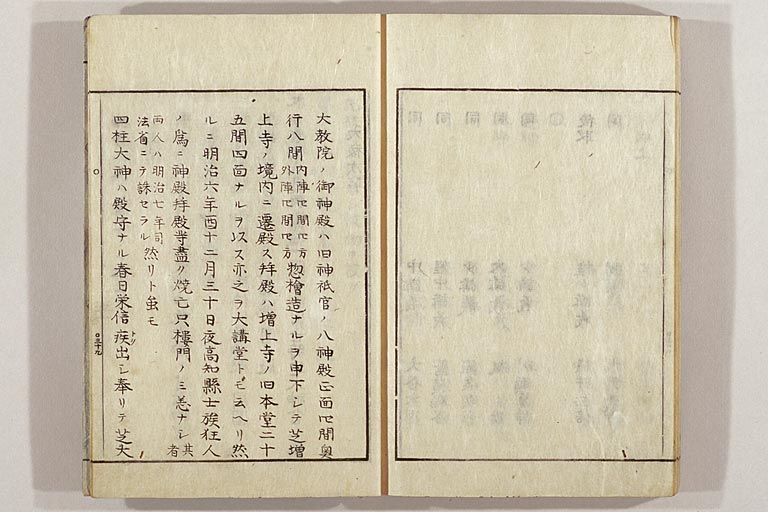 大教院ノ御神殿ハ旧神祇官ノ八神殿正面四間奥
行八間内陣四間四方外陣四間四方惣檜造ナルヲ申下シテ芝増
上寺ノ境内ニ遷殿ス拝殿ハ増上寺ノ旧本堂二十
五間四面ナルヲ以ス亦之ヲ大講堂トモ云ヘリ然
ルニ明治六年酉十二月三十日夜高知縣士族狂人
ノ爲ニ神殿拝殿等盡ク焼亡只樓門ノミ恙ナシ其者
両人ハ明治七年司法省ニテ誅セラル然リト虽モ
四柱大神ハ殿守ナル春日栄信疾トク出シ奉リテ芝大
三十九